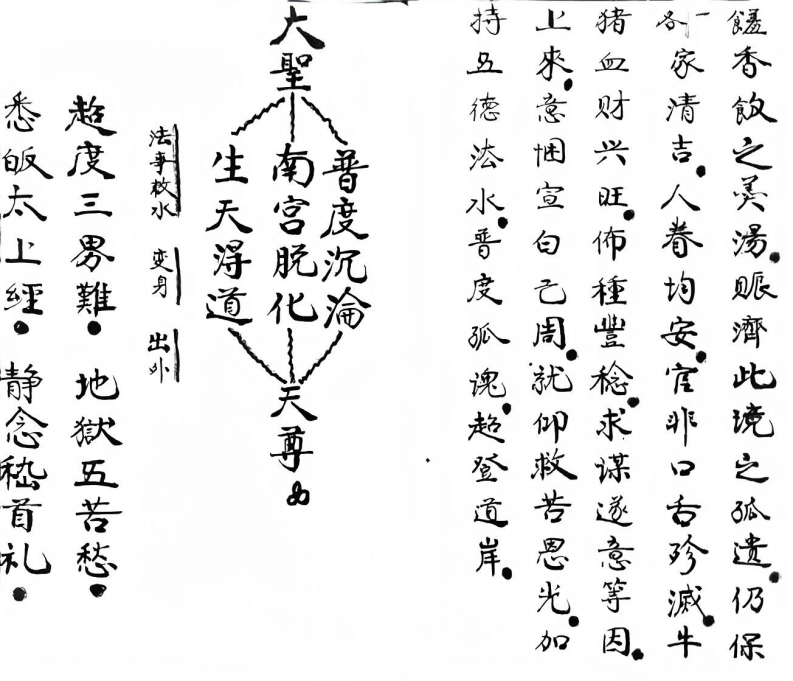 饈香飯之羙湯。賑濟此境之孤遺。仍保
各一家清吉。人眷均安。官非口舌殄滅。牛
猪血财兴旺。佈種豐稔。求谋遂意等因。
上來。意悃宣白己周。就仰救苦恩光。加
持五德法水。普度孤魂。超登道岸。
大聖
普度沉淪
南宫脱化
生天淂道
天尊
法事救水 变身 出外
超度三界難。地獄五苦愁。
悉皈太上經。静念嵇首礼。